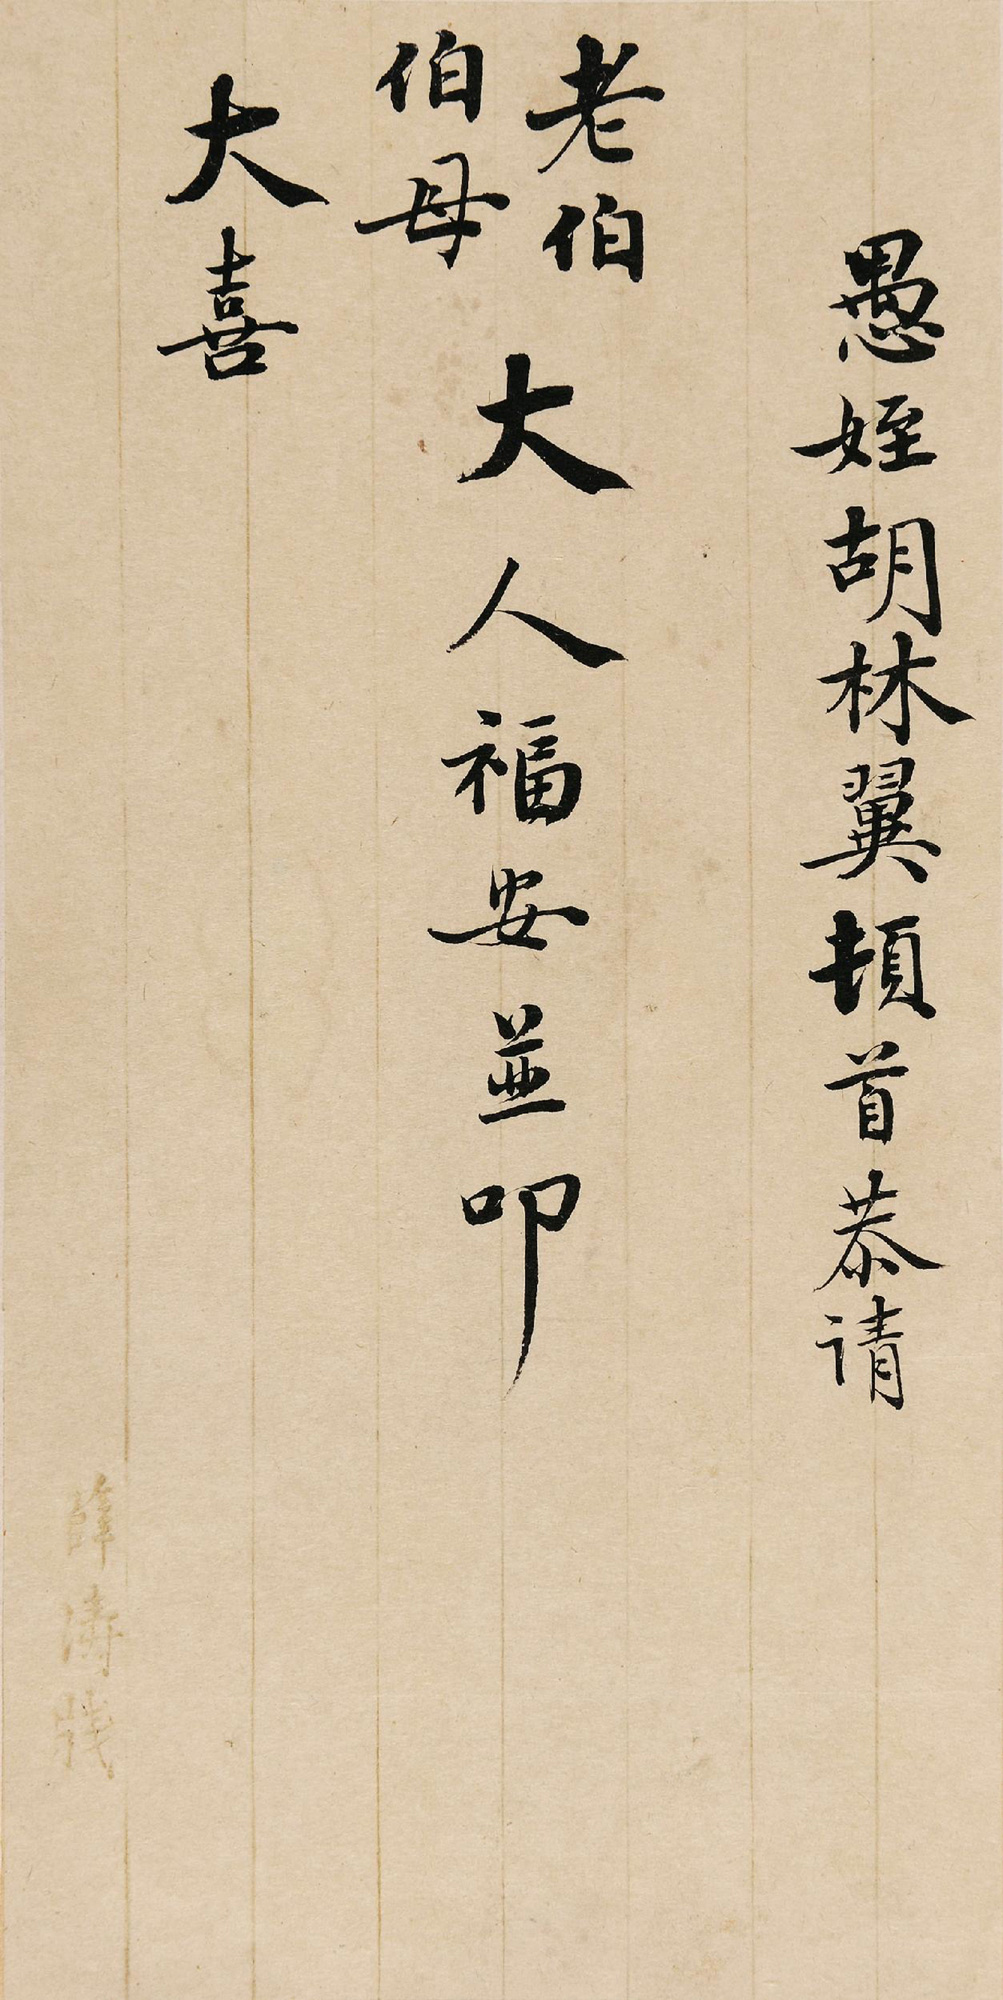 愚姪胡林翼頓首恭请
老伯
伯母
大人福安並叩
大喜
薛濤牋